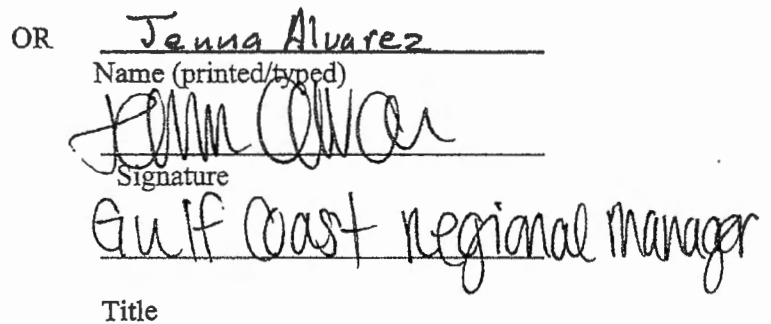 OR Jenna Alvarez
Name (printed/typed)
Signature
Gulf Coast regional manager
Title